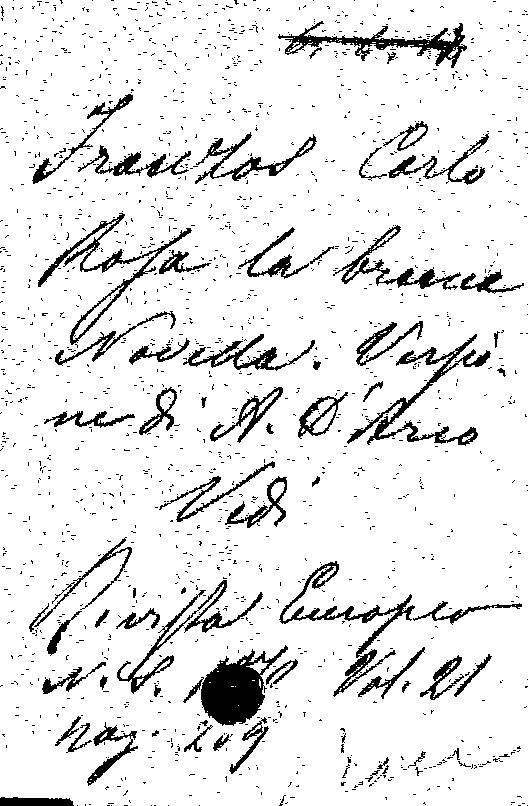 Franzos Carlo
Rosa la bruna
Novella. Versio-
ne di A. D'Arco
Vedi
Rivista Europea
N. S. Vol. 21
pag. 209